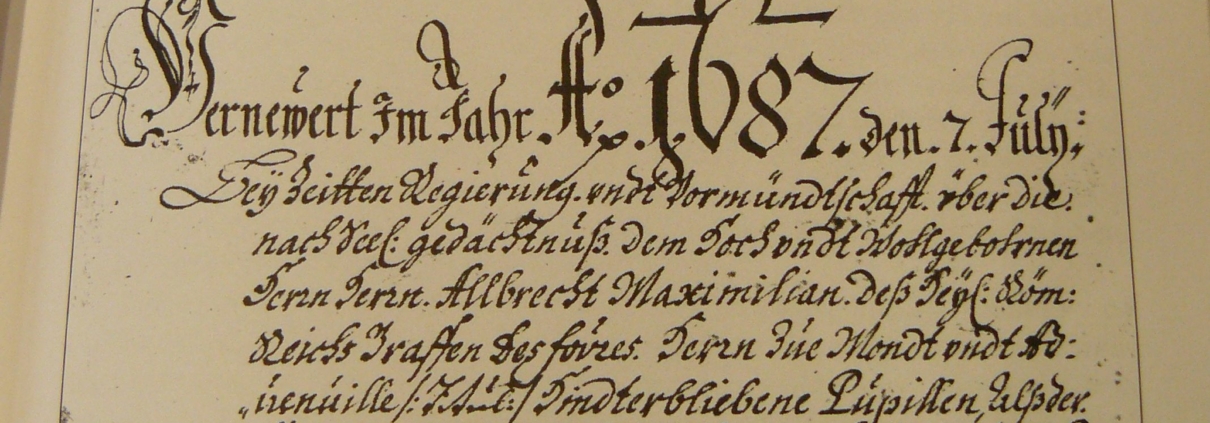 Vernewert Im Jahr. Aō. 1687. den. 7. July:
Bey Zeitten Regierung. vndt Vormündtschafft. vber die.
nach Seel: gedächtnuß. dem Hoch vndt Wollgebohrnen
Herrn Herrn. Allbrecht Maximilian. deß Heyl: Röm:
Reichs Graffen des fovres. Herrn Zue Mondt vndt Ad:
uenuille /: Titul: / Hindterbliebene Pupillen, Alß der.